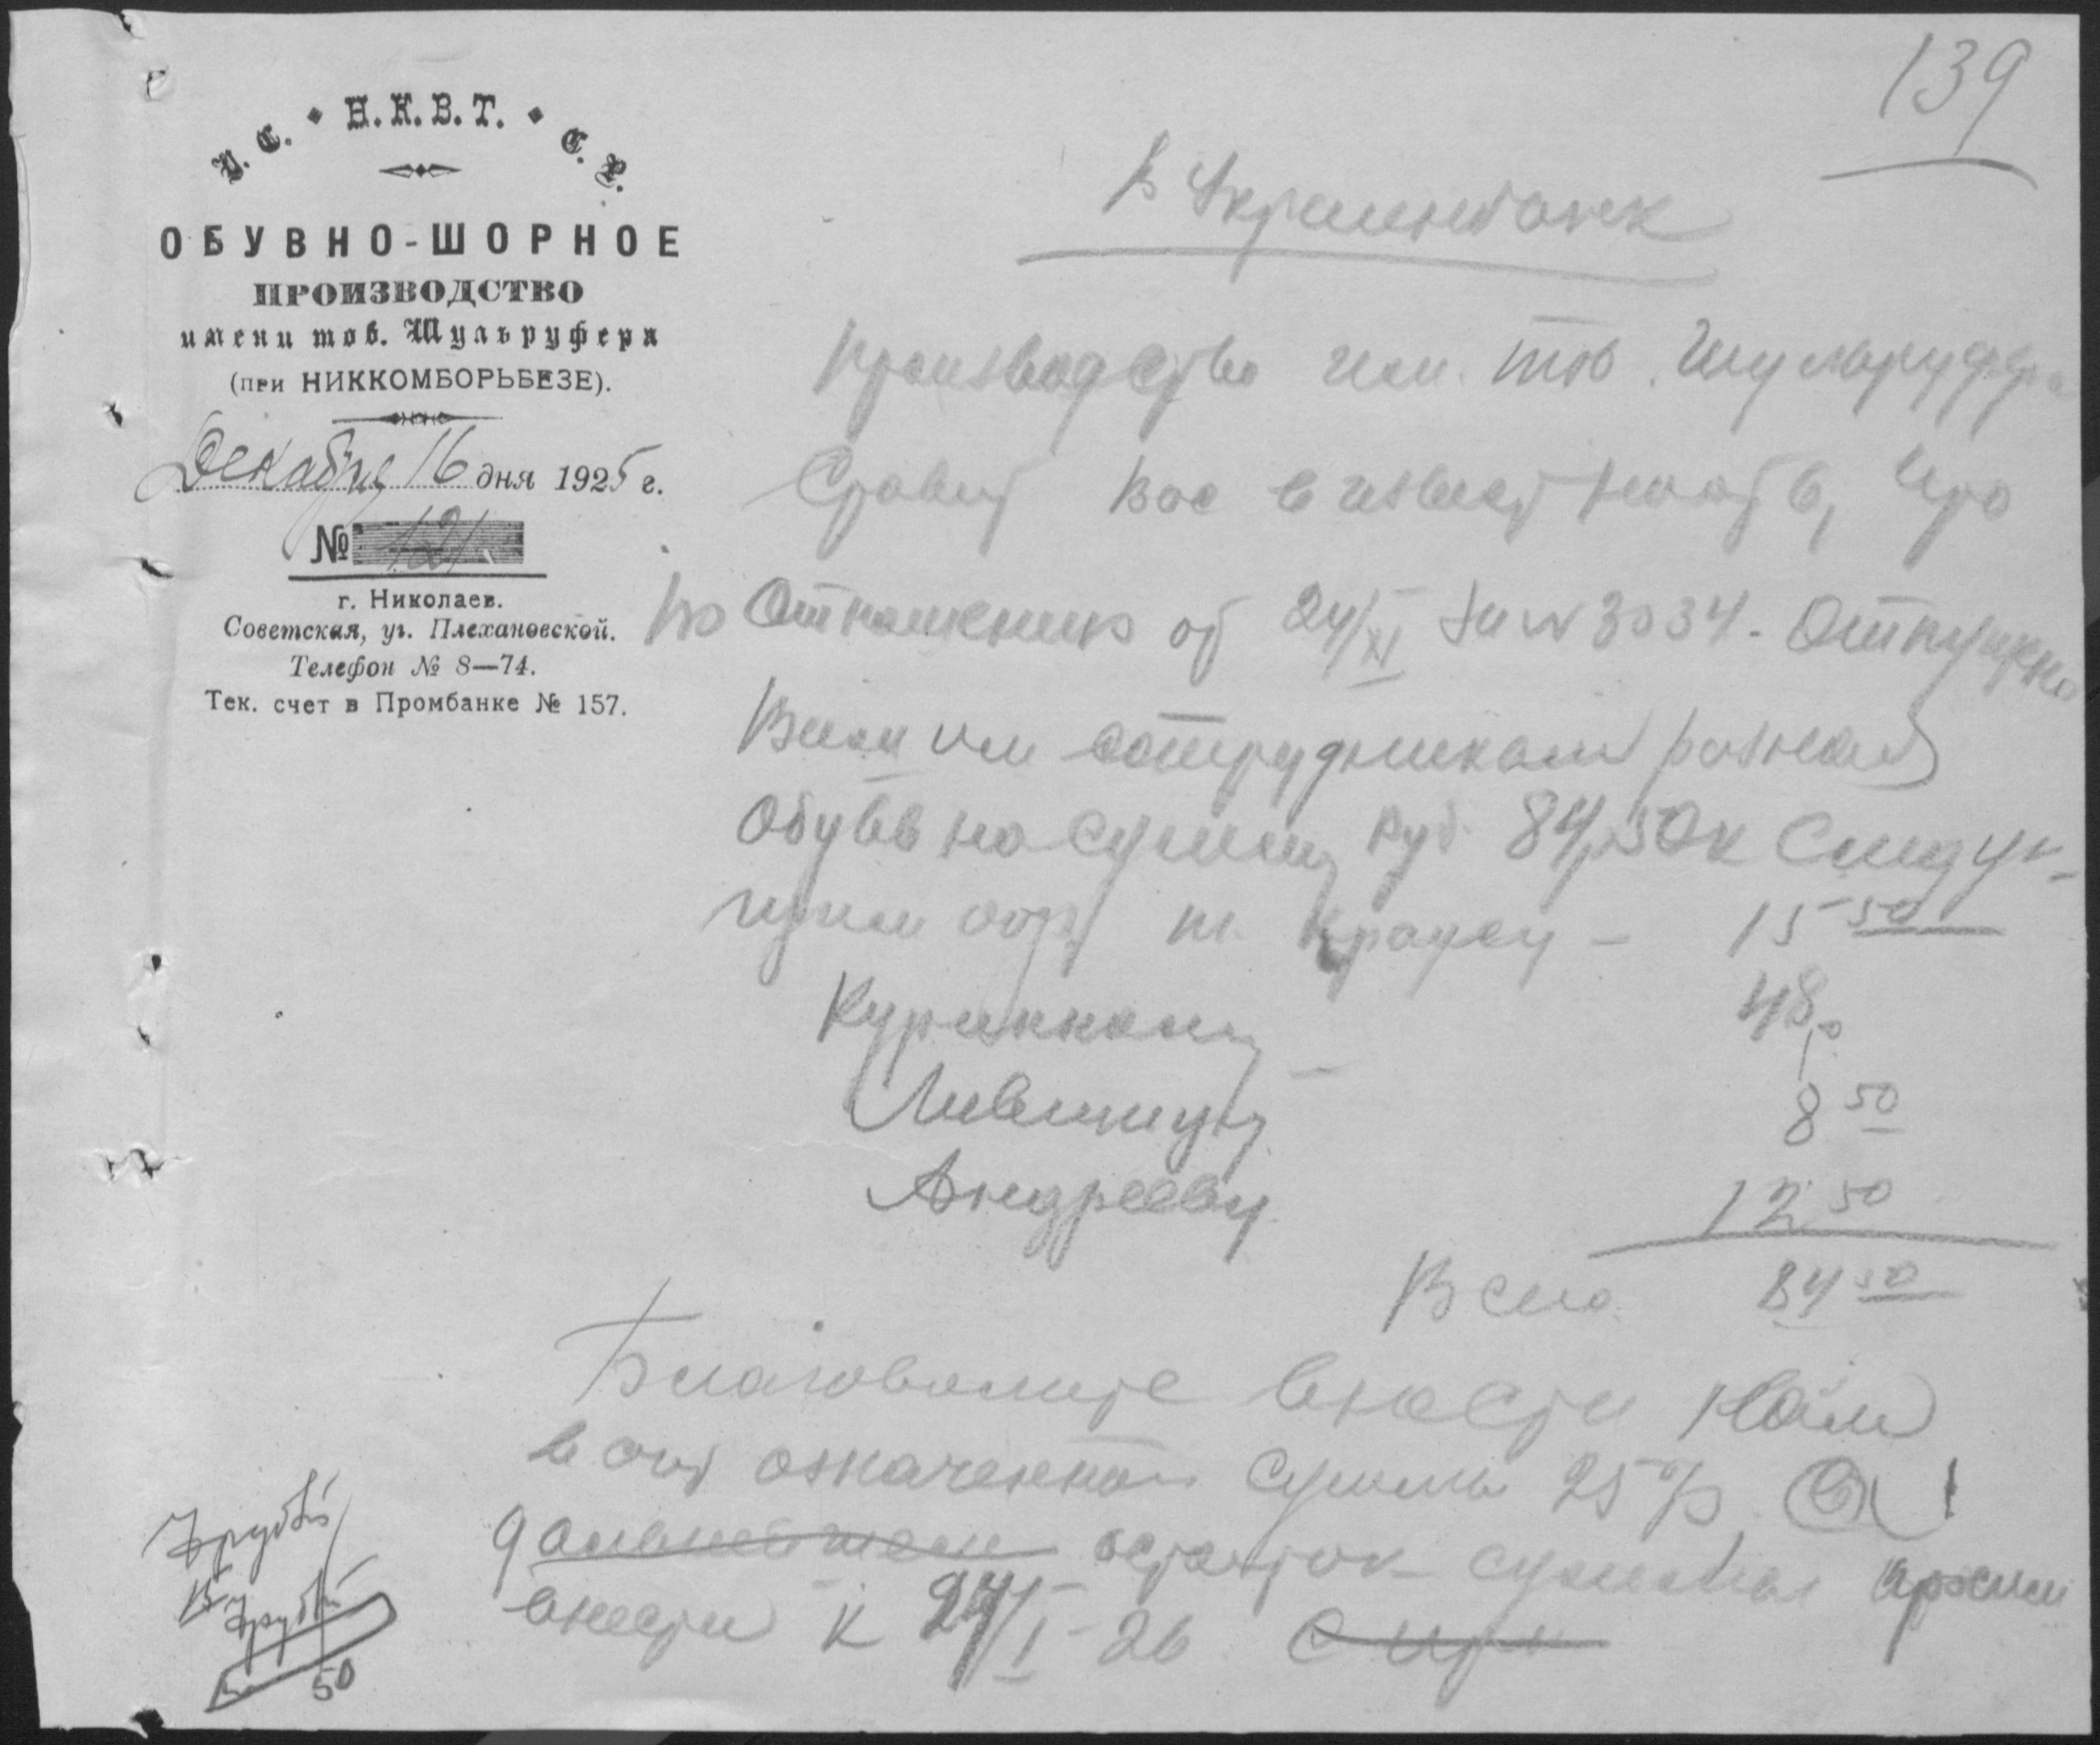 139
У. С. • Н. К. В. Т. • С. Р.
ОБУВНО-ШОРНОЕ
ПРОИЗВОДСТВО
имени тов. Шульруфера
(при НИККОМБОРЬБЕЗЕ).
Декабря 16 дня 1925 г.
№ 121
г. Николаев.
Советская, уг. Плехановской.
Телефон № 8—74.
Тек. счет в Промбанке № 157.
В
Производство им. тов. Шульруфера
Ставит Вас в известность, что
по Отношению от 24/XI за № 3034. Отпущено
Вашим сотрудникам разная
Обувь на сумму Руб. 84,50 к Следую-
щим т. Краусу - 15 50
48,0
Лившицу 8 50
Андрееву 12 50
Всего 84 50
Благоволите внести нам
в означенной суммы 25%
дальнейшем остаток суммы просим
внести к 24/I-26
50